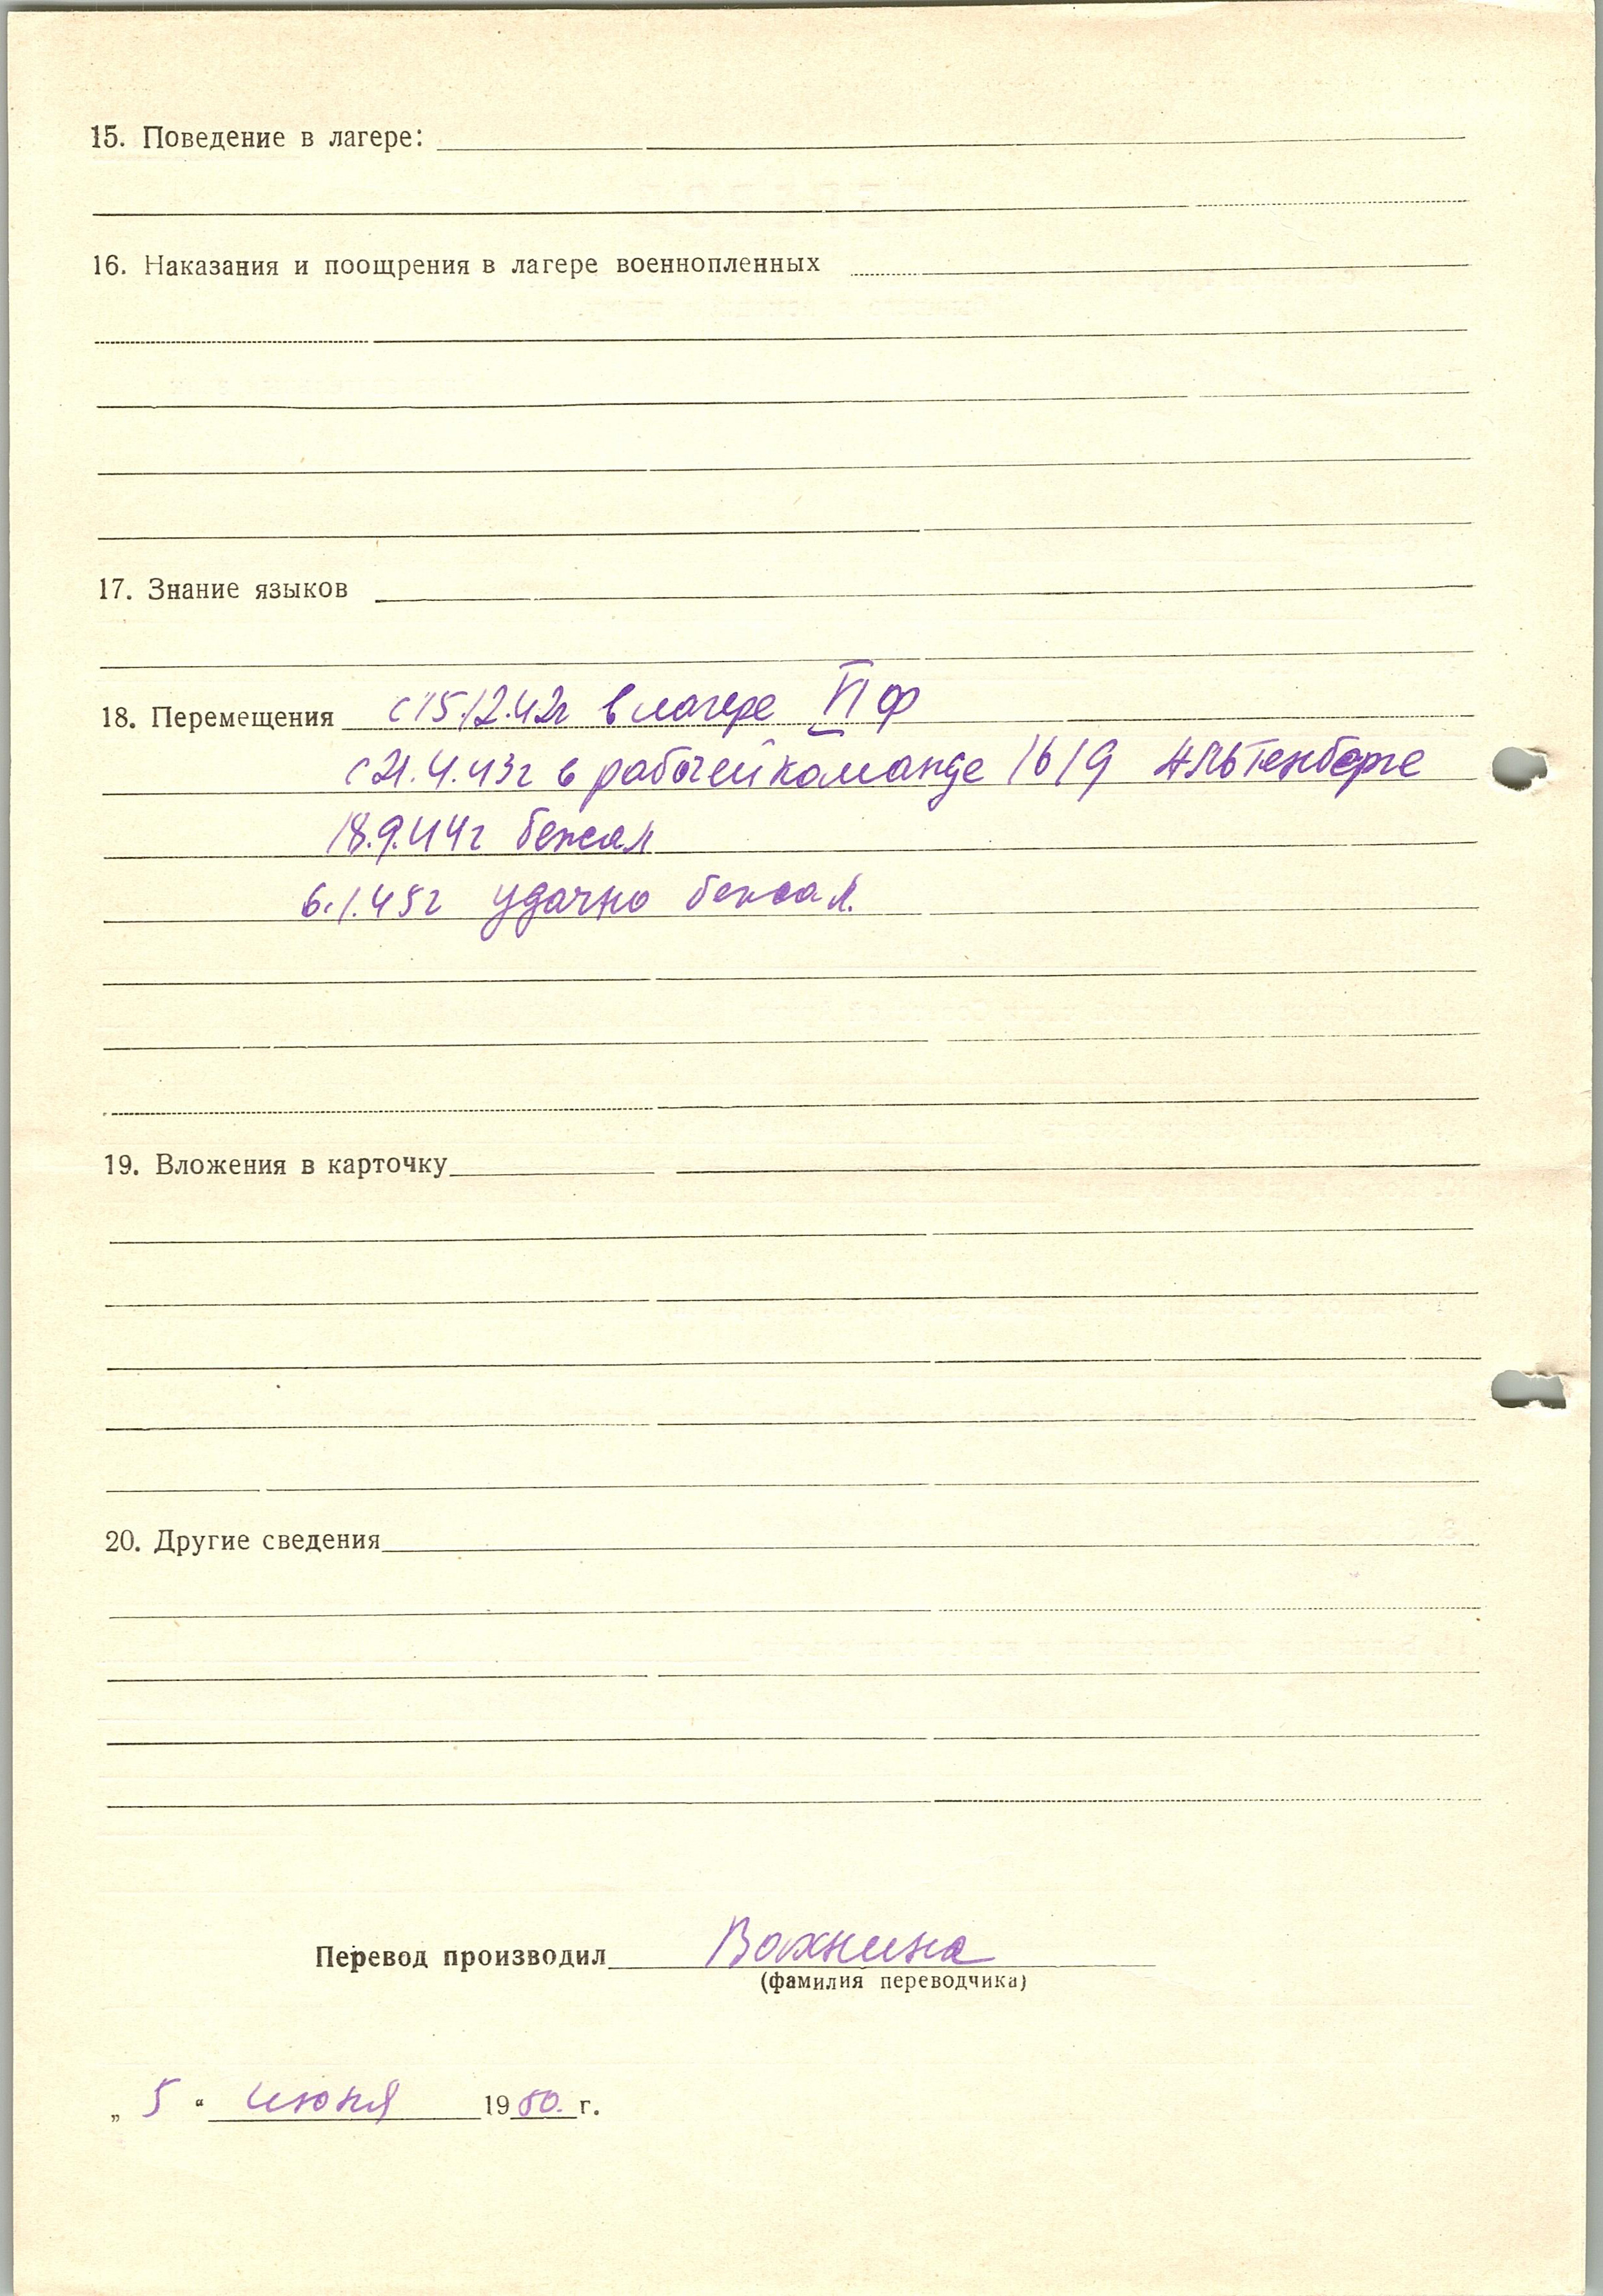 15. Поведение в лагере:
16. Наказания и поощрения в лагере военнопленных
17. Знание языков
18. Перемещения с 15.12.42г в лагере VI ф
с 21.4.43г в рабочей команде 1619 Альтенберге
18.9.44г бежал
6.1.45г удачно бежал.
19. Вложения в карточку
20. Другие сведения
Перевод производил Вахнина
(фамилия переводчика)
„ 5 “ июня 1950. г.